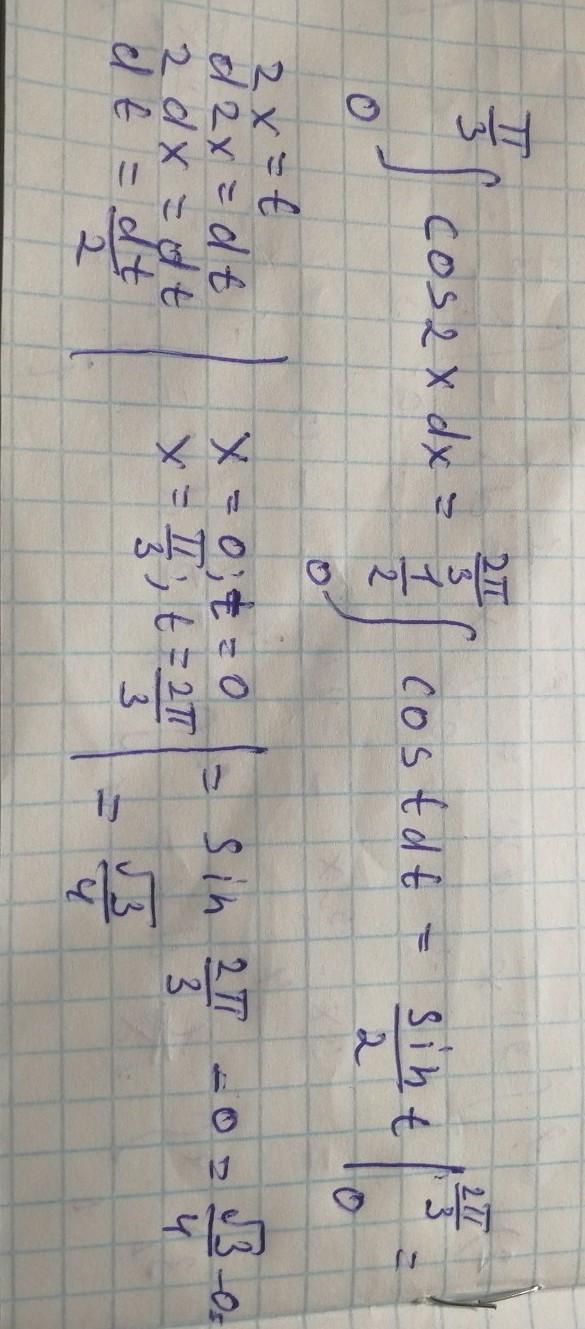 ∫₀^(π/3) cos2x dx = ∫₀^(2π/3) 1/2 cos t dt = sin t/2 |₀^(2π/3) =
2x = t
d2x = dt
2dx = dt
dt = dt/2
x = 0; t = 0
x = π/3; t = 2π/3
= sin 2π/3 - 0 = √3/4 - 0 =
= √3/4